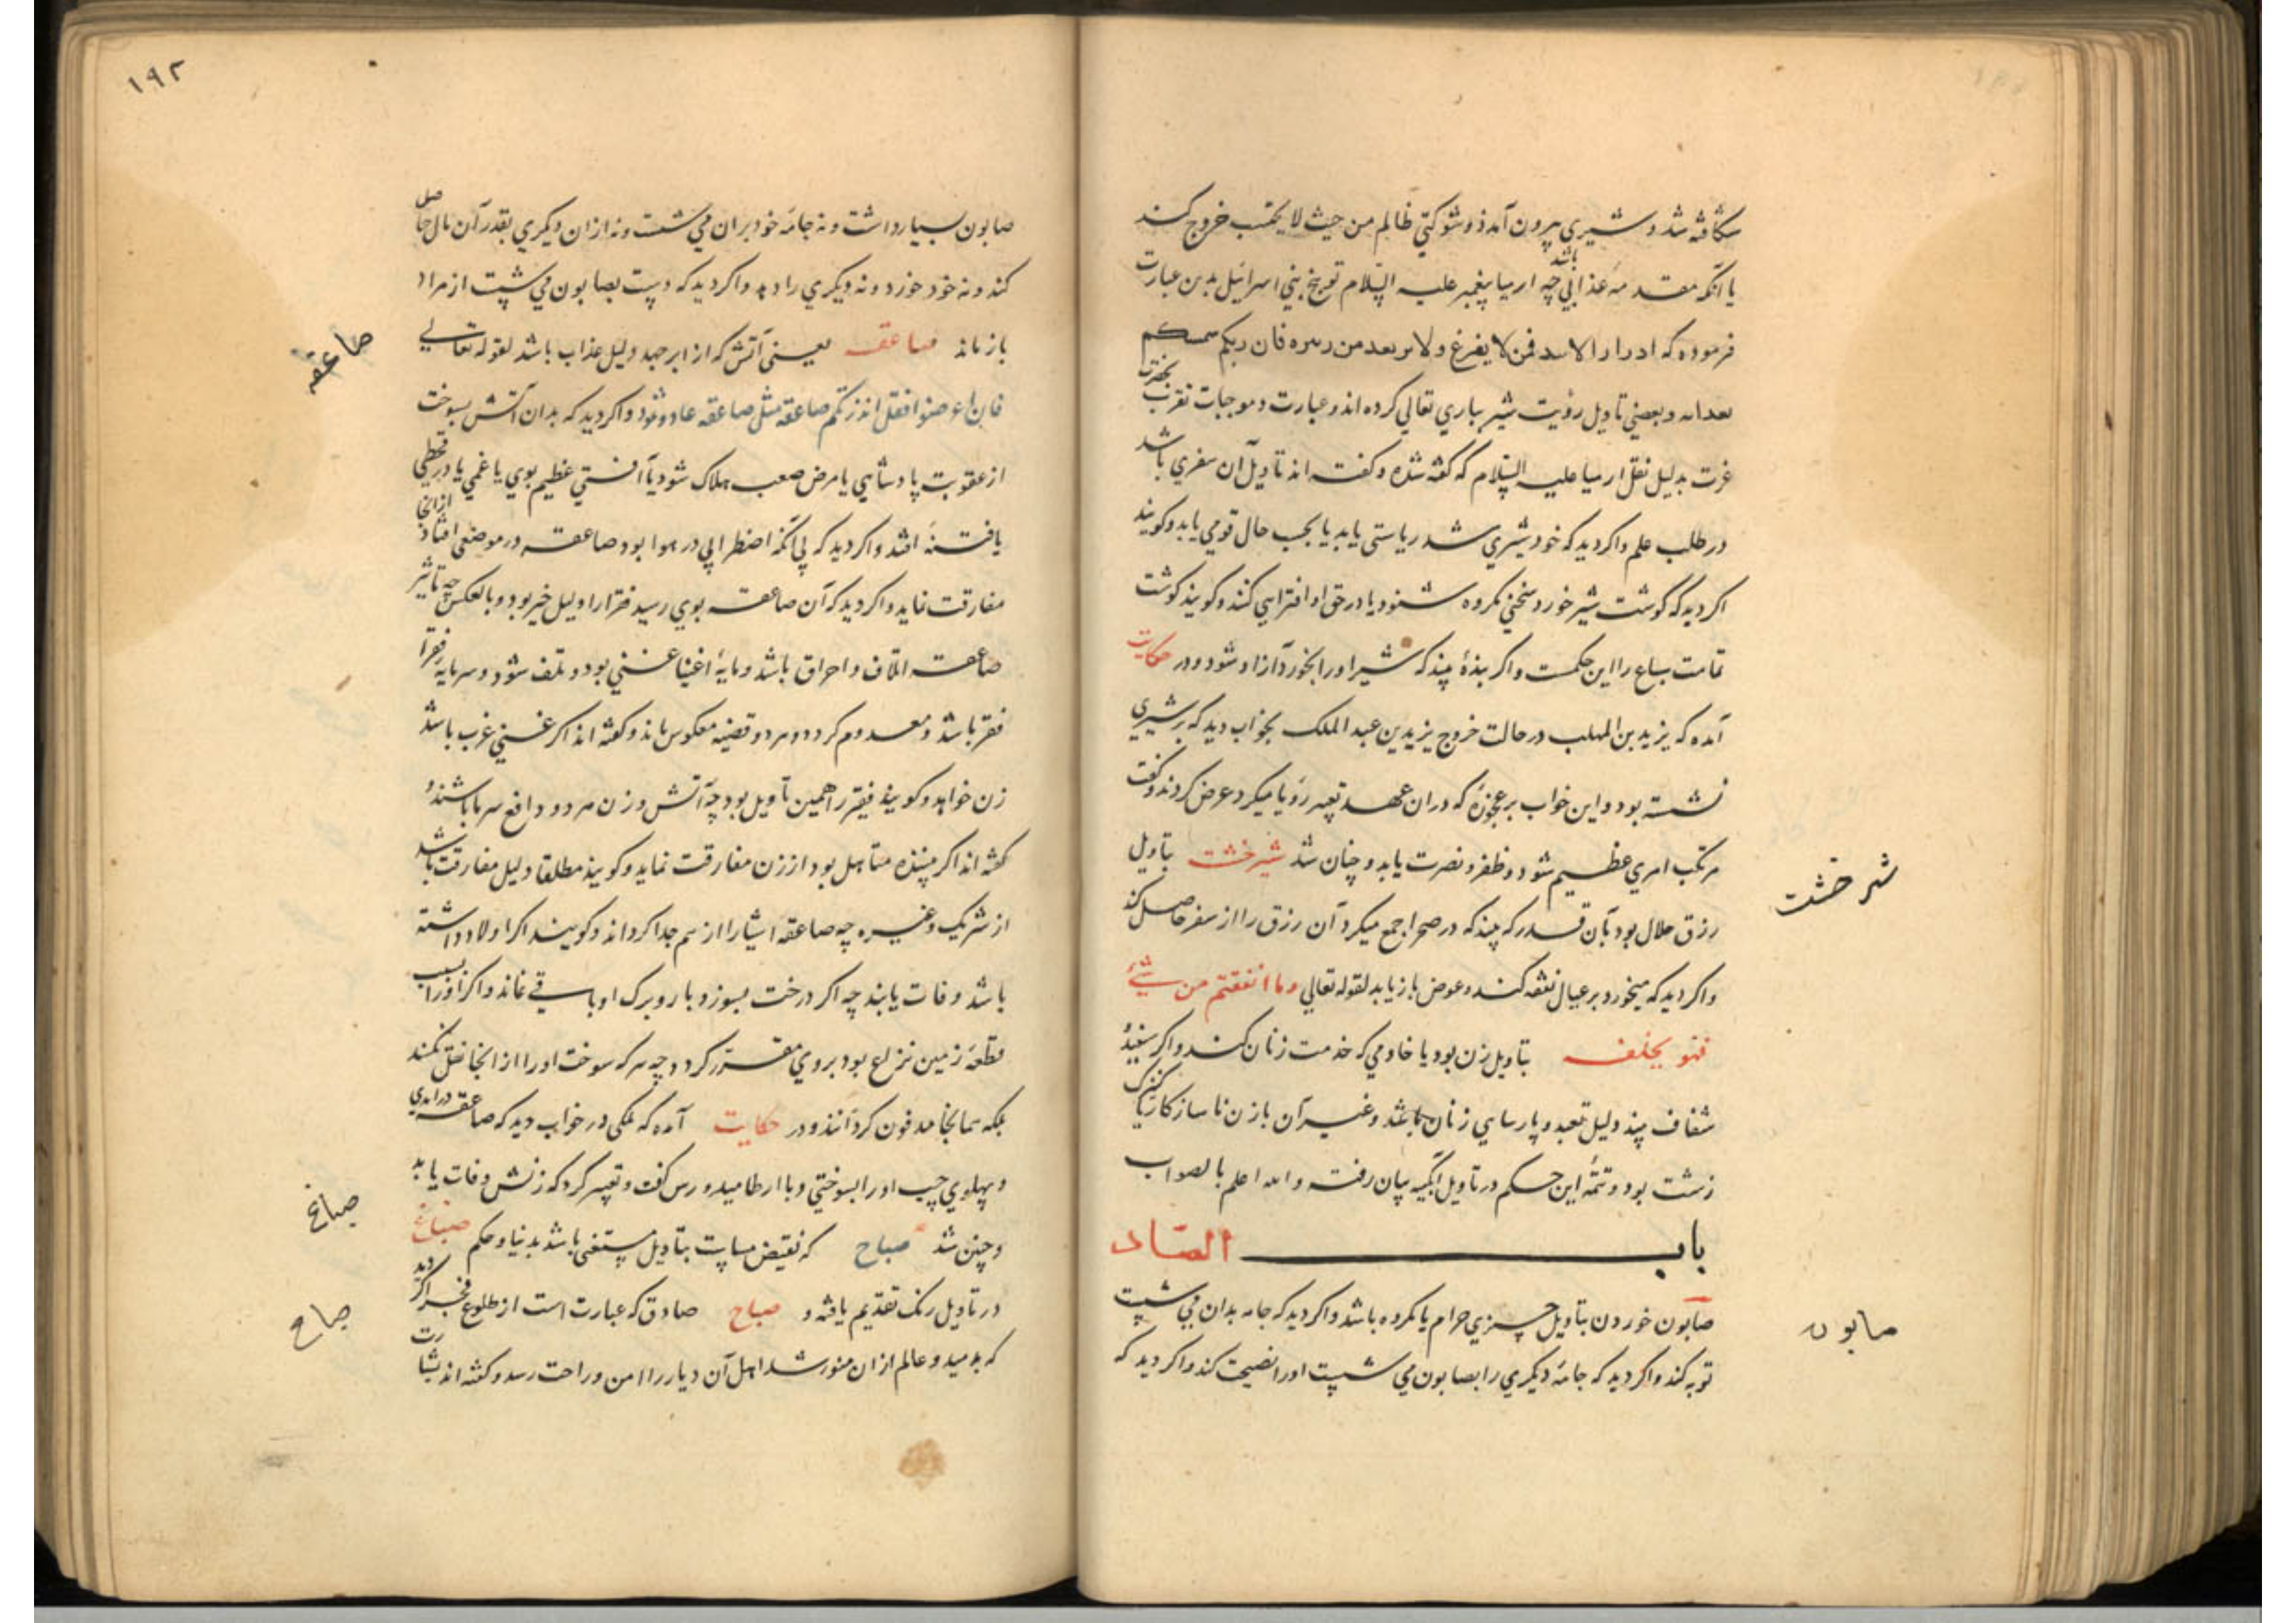 شکافته شد و شیری بیرون آمد ذو شوکتی ظالم من حیث لا یحتسب خروج کند
یا آنکه مقدمه عذابی باشد چه ارمیا پیغمبر علیه السلام توبیخ بنی اسرائیل بدین عبارت
فرموده که الاسد فمن لا یفزع و من فان ربکم
و بعضی تاویل رؤیت شیر بباری تعالی کرده اند و عبارت و موجبات تقرب بحضرت
عزت بدلیل نقل ارمیا علیه السلام که گفته شده و گفته اند تاویل آن سفری باشد
در طلب علم و اگر دید که خود شیری شد ریاستی یابد یا بحسب حال قومی یابد و گویند
اگر دید که گوشت شیر خورد سخنی مکروه شنود یا در حق او افترایی کنند و گویند گوشت
تمامت سباع را این حکمست و اگر بندهٔ بیند که شیر او را بخورد آزاد شود و در حکایت
آمده که یزید بن المهلب در حالت خروج یزید بن عبد الملک بخواب دید که بر شیری
نشسته بود و این خواب بر عجوزهٔ که در آن عهد تعبیر رؤیا میکرد عرض کردند و گفت
مرتکب امری عظیم شود و ظفر و نصرت یابد و چنان شد شیرخشت بتاویل
رزق حلال بود بآن قدر که بیند که در صحرا جمع میکرد آن رزق را از سفر حاصل کند
و اگر دید که میخورد بر عیال نفقه کند و عوض باز یابد لقوله تعالی وما انفقتم من شیء
فهو یخلفه بتاویل زن بود یا خادمی که خدمت زنان کند و اگر سفید
شفاف بیند دلیل تعبد و پارسایی زنان باشد و غیر آن با زن ناسازکار یا کنیزک
زشت بود و تتمهٔ این حکم در تاویل آبگینه بیان رفت والله اعلم بالصواب
باب الصاد
صابون خوردن بتاویل چیزی حرام یا مکروه باشد و اگر دید که جامه بدان می شست
توبه کند و اگر دید که جامهٔ دیگری را بصابون می شست او را نصیحت کند و اگر دید که
شیرخشت
صابون
۱۹۲
صابون بسیار داشت و نه جامهٔ خود بران می شست و نه ازان دیگری بقدر آن مال حاصل
کند و نه خود خورد و نه دیگری را دهد و اگر دید که دست بصابون می شست از مراد
باز ماند صاعقه یعنی آتش که از ابر جهد دلیل عذاب باشد لقوله تعالی
فان اعرضوا فقل انذرتکم صاعقة مثل صاعقة عاد و ثمود و اگر دید که بدان آتش بسوخت
از عقوبت پادشاهی یا مرض صعب هلاک شود یا آفتی عظیم بوی یا غمی یا در قحطی
یا فتنهٔ افتد و اگر دید که بی آنکه اضطرابی در هوا بود صاعقه در موضعی افتاد از انجا
مفارقت نماید و اگر دید که آن صاعقه بوی رسید فقرا را دلیل خیر بود و بالعکس چه تاثیر
صاعقه اتلاف و احراق باشد و مایهٔ اغنیا غنی بود و تلف شود و سرمایه فقرا
فقر باشد و معدوم گردد و هر دو قضیه معکوس ماند و گفته اند اگر غنی عزب باشد
زن خواهد و گویند فقیر را همین تاویل بود چه آتش و زن هر دو دافع سرما باشند و
گفته اند اگر بیننده متاهل بود از زن مفارقت نماید و گویند مطلقا دلیل مفارقت باشد
از شریک و غیره چه صاعقه اشیا را از هم جدا گرداند و گویند اگر اولاد داشته
باشد وفات یابند چه اگر درخت بسوزد بار و برگ او باقی نماند و اگر او را بسبب
قطعهٔ زمین نزاع بود بروی مقرر گردد چه هر که سوخت او را از انجا نقل نکنند
بلکه همانجا مدفون گردانند و در حکایت آمده که ملکی در خواب دید که صاعقه درآمدی
و پهلوی چپ او را بسوختی و با ارطامیدورس گفت و تعبیر کرد که زنش وفات یابد
و چنین شد صباح که نقیض مساست بتاویل مستغنی باشد بدنیا و حکم صباغ
در تاویل رنگ تقدیم یافته و صباح صادق که عبارت است از طلوع فجر اگر دید
که بدمید و عالم ازان منور شد اهل آن دیار را امن و راحت رسد و گفته اند بشارت
صاعقه
صباغ
صباح